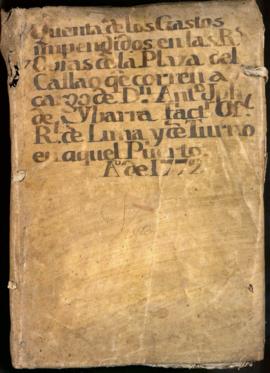 Quenta de los Gastos
impendidos en las Rs
Obras de la Plaza del
Callao qe corren a
cargo de Dn Anto Jph
de Ybarra factr Ofl
Rl de Lima y de Turno
en aquel Puerto
Ao de 1772